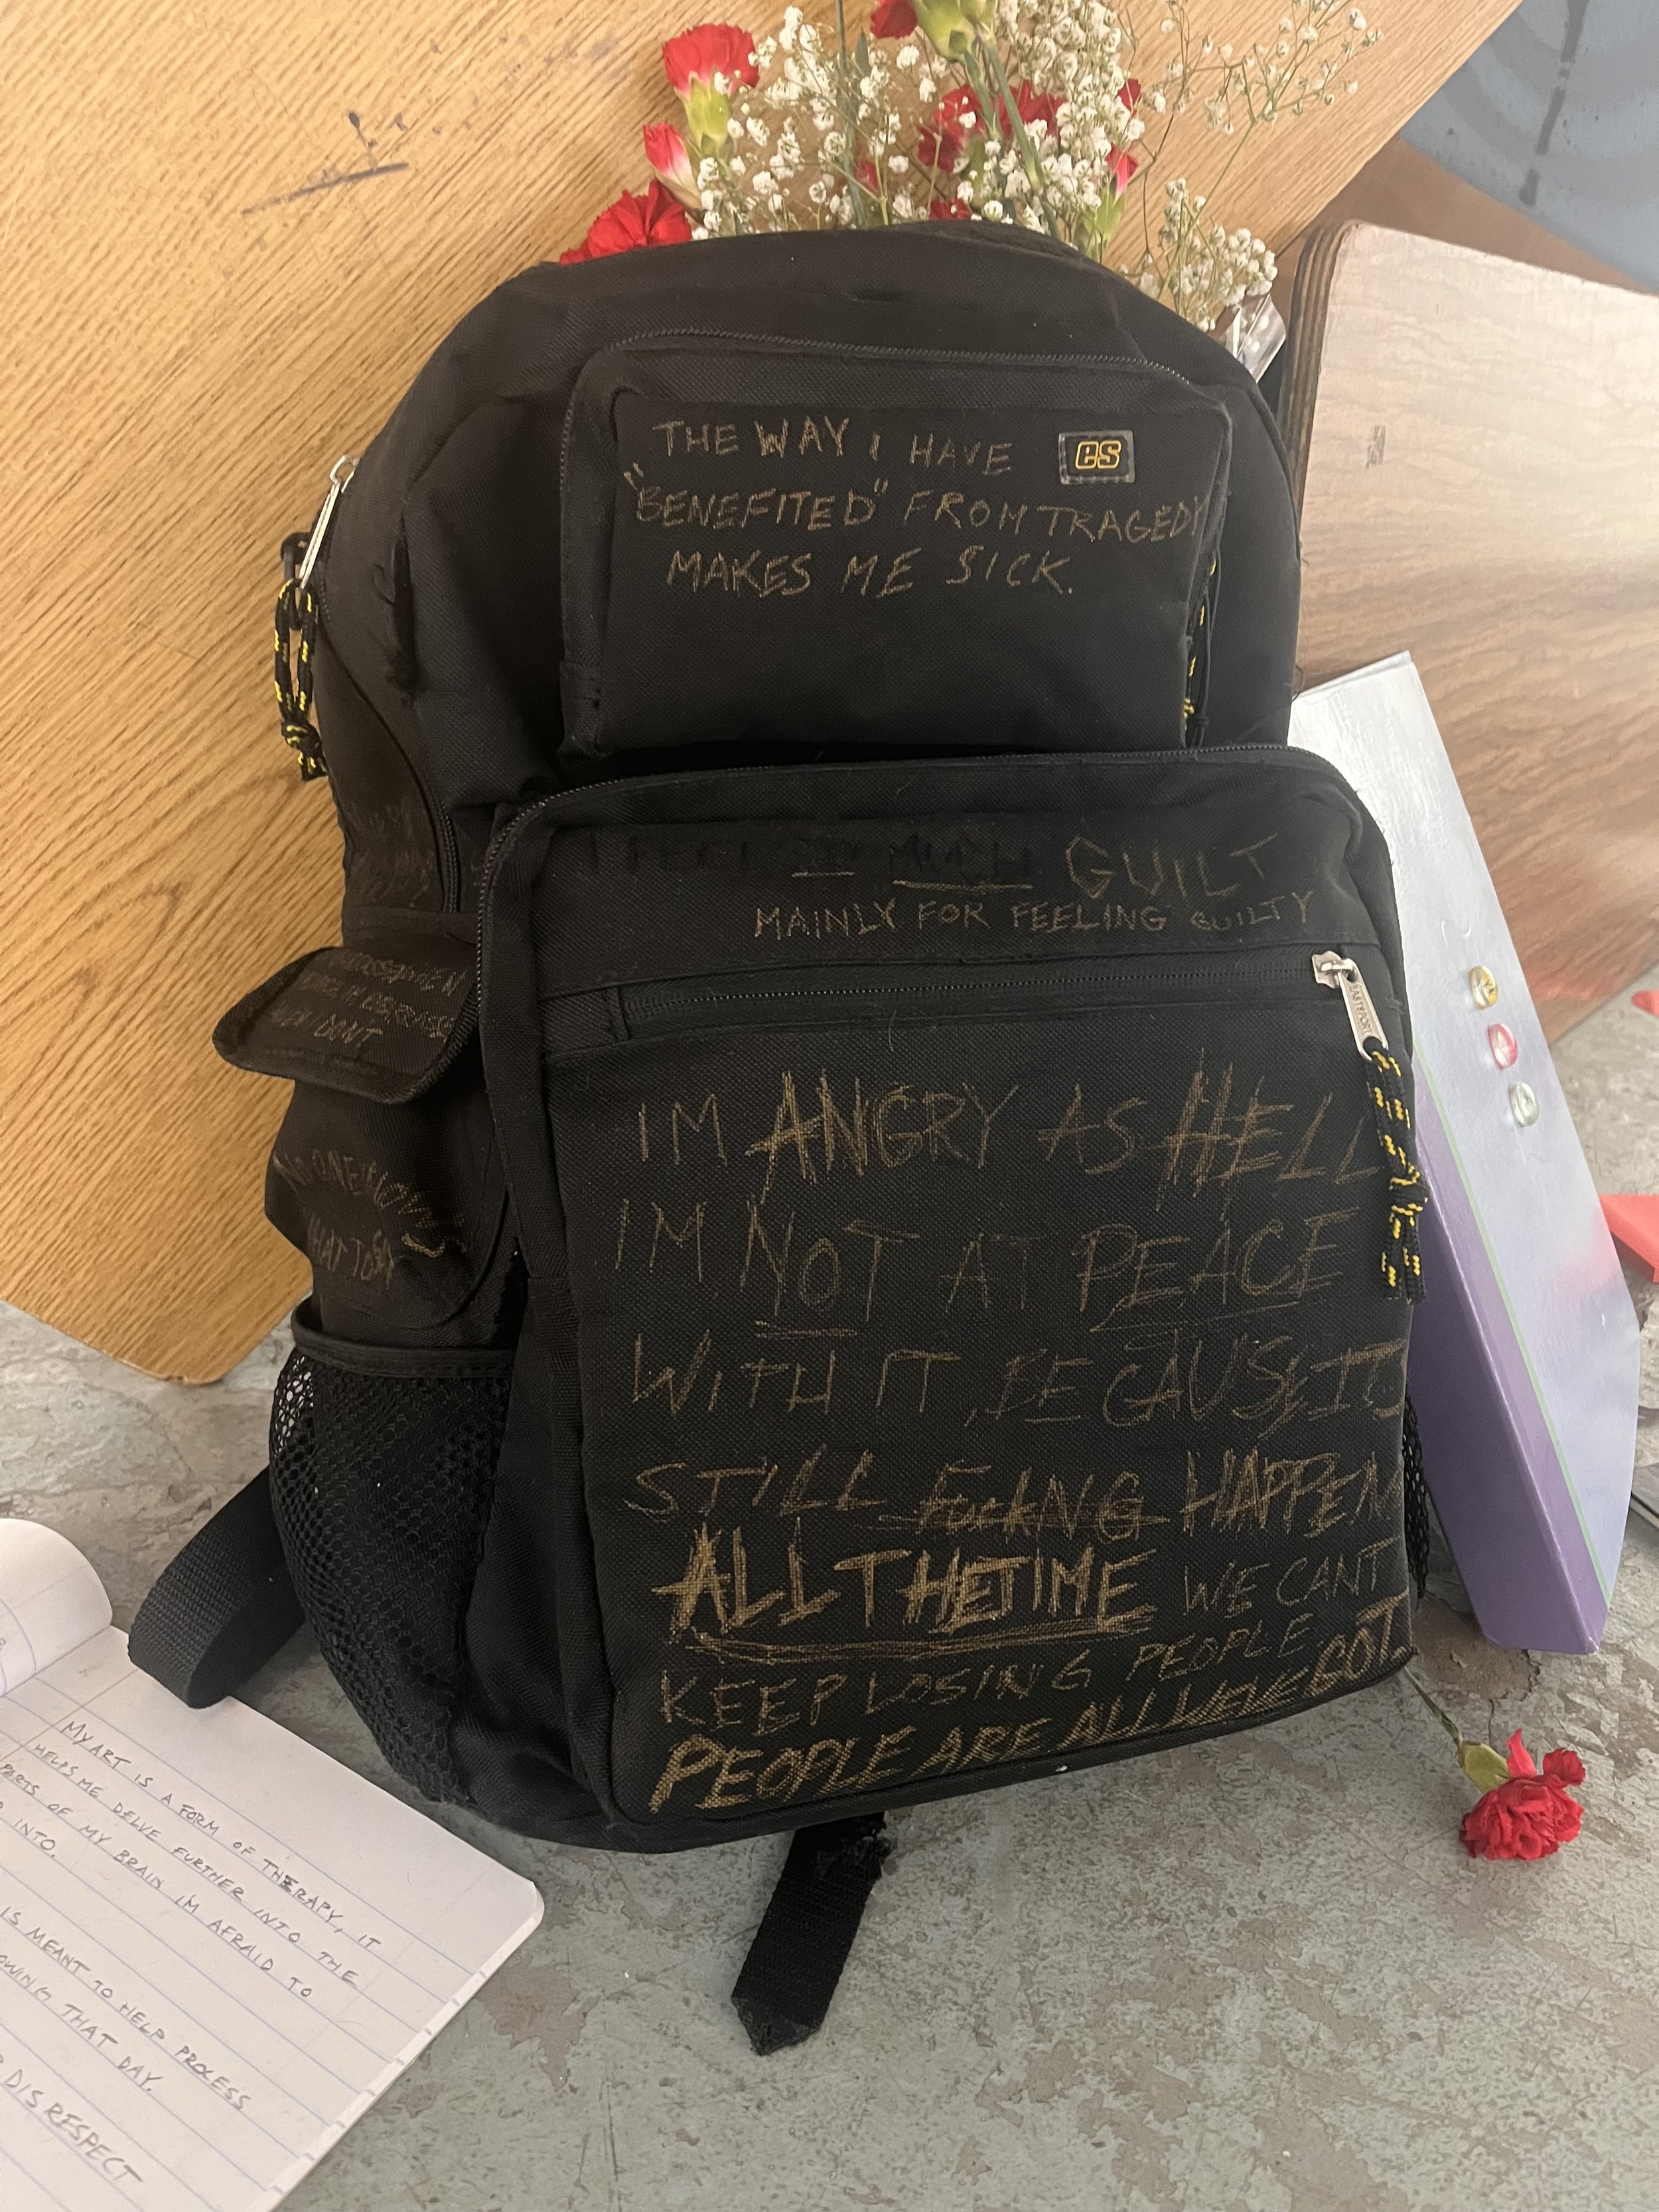 THE WAY I HAVE
es
"BENEFITED" FROM TRAGEDY
MAKES ME SICK.
I FEEL SO MUCH GUILT
MAINLY FOR FEELING GUILTY
EASTSPORT
MEN DON'T
NO ONE KNOWS
WHAT TO SAY
IM ANGRY AS HELL
IM NOT AT PEACE
WITH IT, BECAUSE, ITS
STILL FUCKNG HAPPEN
ALL THE TIME WE CANT
KEEP LOSING PEOPLE
PEOPLE ARE ALL WE'VE GOT.
MY ART IS A FORM OF THERAPY, IT
HELPS ME DELVE FURTHER INTO THE
PARTS OF MY BRAIN I'M AFRAID TO
INTO.
IS MEANT TO HELP PROCESS
THAT DAY.
DISRESPECT